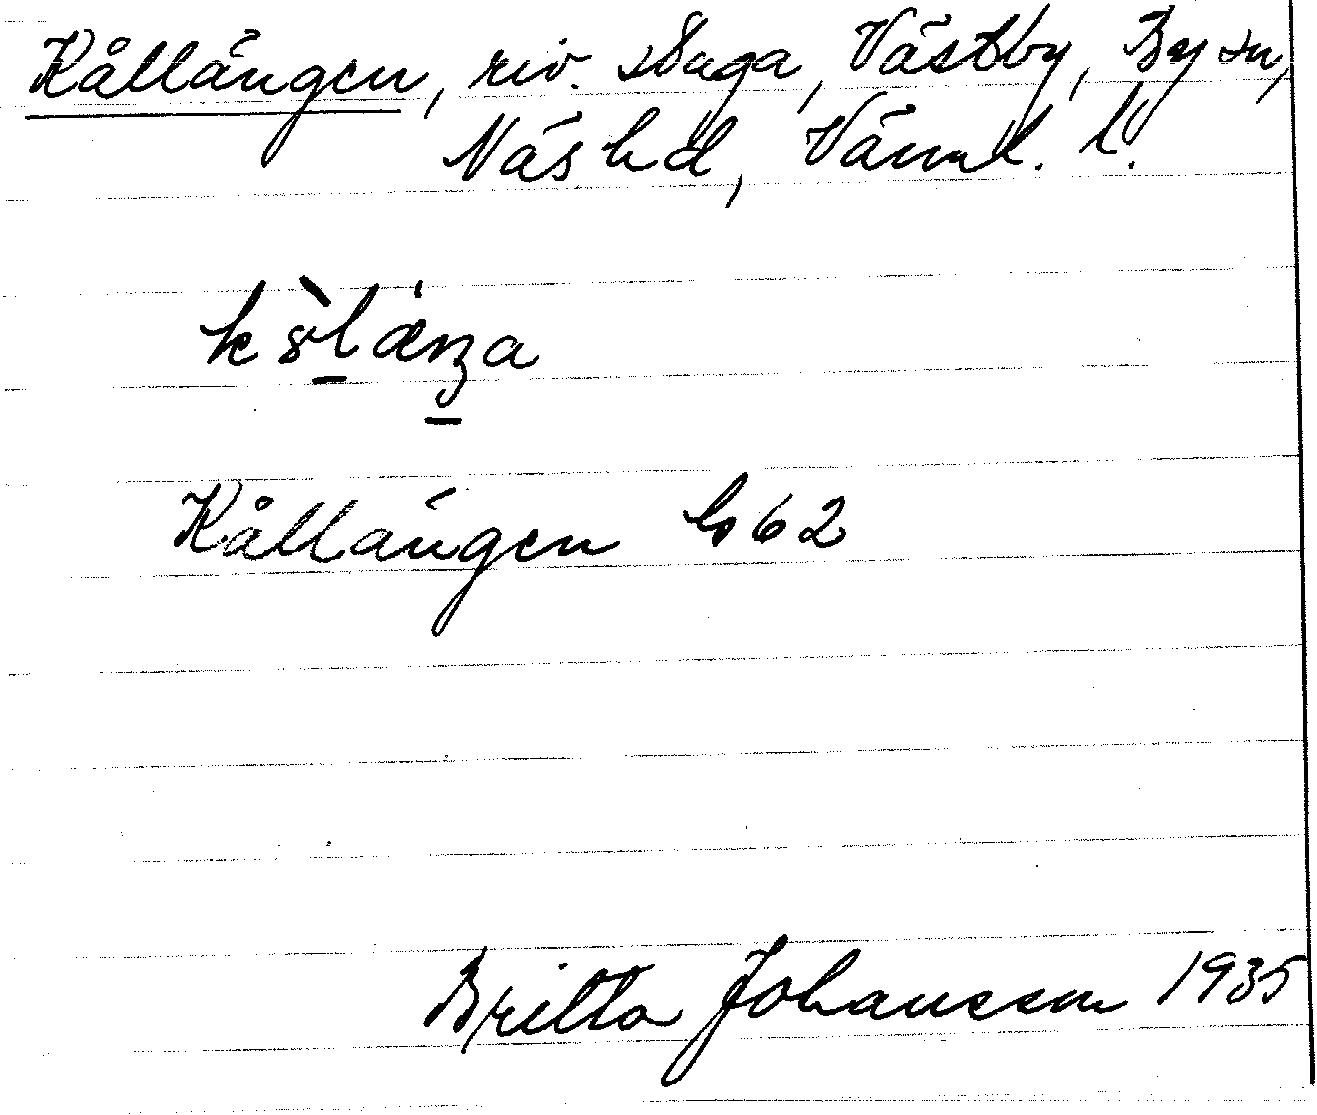 Kållängen, riv. stuga, Västby, By sn,
Näs hd, Värml. l.
Kållängen
62
Britta Johansson 1935